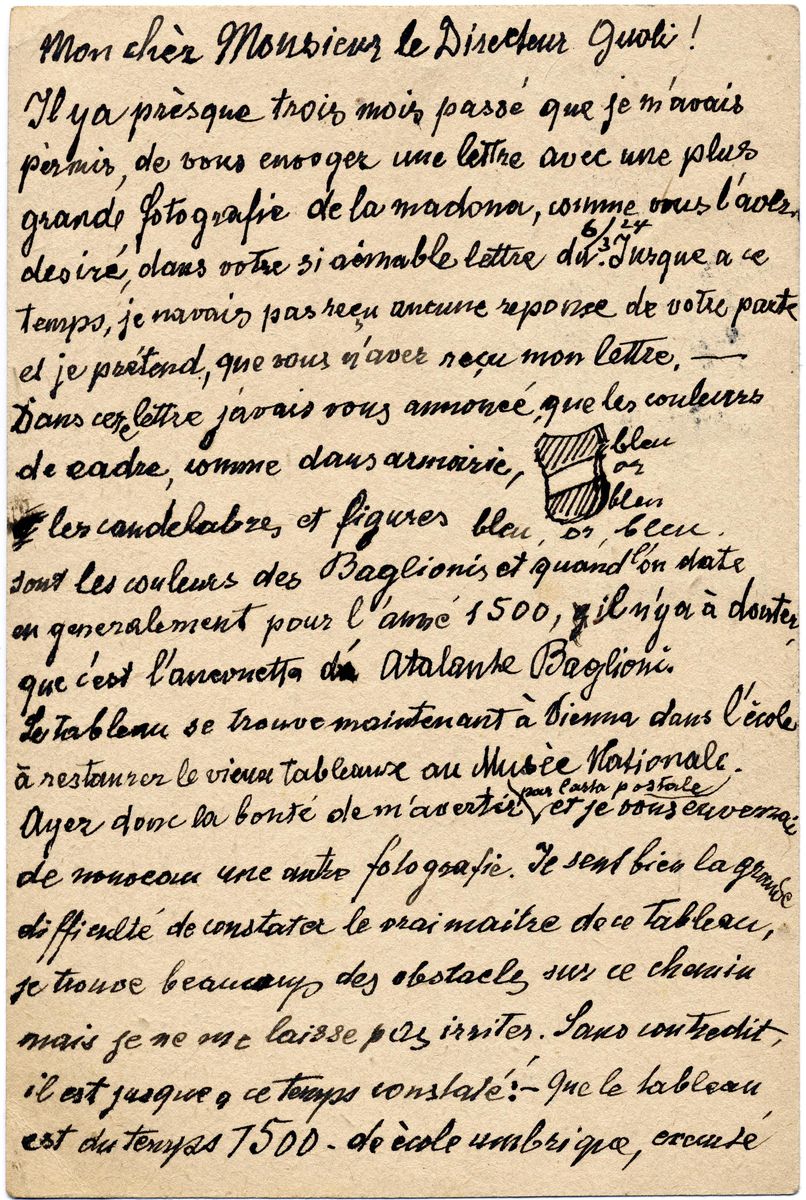 Mon chèr Monsieur le Directeur Gnoli!
Il ya prèsque trois mois passé que je m'avais
pèrmis, de vous envoyer une lettre avec une plus
grande fotografie de la madona, comme vous l'avez
desiré, dans votre si aèmable lettre du 6/3. 24 Jusque a ce
temps, je navais pas reçu aucune reponse de votre parte
et je prétend, que vous n'aver reçu mon lettre. —
Dans cette lettre j'avais vous annoncé, que les couleurs
de cadre, comme dans armoirie,
bleu
or
bleu
les candelabres et figures bleu, or, bleu.
sont les couleurs des Baglionis et quand l'on date
en generalement pour l'anné 1500, il n'ya à douter,
que c'est l'anconetta de Atalante Baglioni.
Le tableau se trouve maintenant à Vienna dans l'école
à restaurer le vieux tableaux au Musèe Nationale.
Ayer donc la bonté de m'avertir par carta postale et je vous enverrai
de nouveau une autre fotografie. Je sent bien la grande
difficulté de constater le vrai maitre de ce tableau,
je trouve beaucoup des obstacles sur ce chemin
mais je ne me laisse pas irriter. Sans contredit,
il est jusque a ce temps constaté:- Que le tableau
est du temps 1500 - de ècole umbrique, execusé